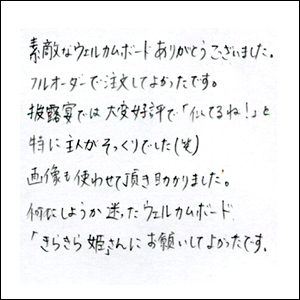 素敵なウェルカムボードありがとうございました。
フルオーダーで注文してよかったです。
披露宴では大変好評で「似てるね!」と
特に主人がそっくりでした(笑)
画像も使わせて頂き助かりました。
何にしようか迷ったウェルカムボード
「きらきら姫」さんにお願いしてよかったです。